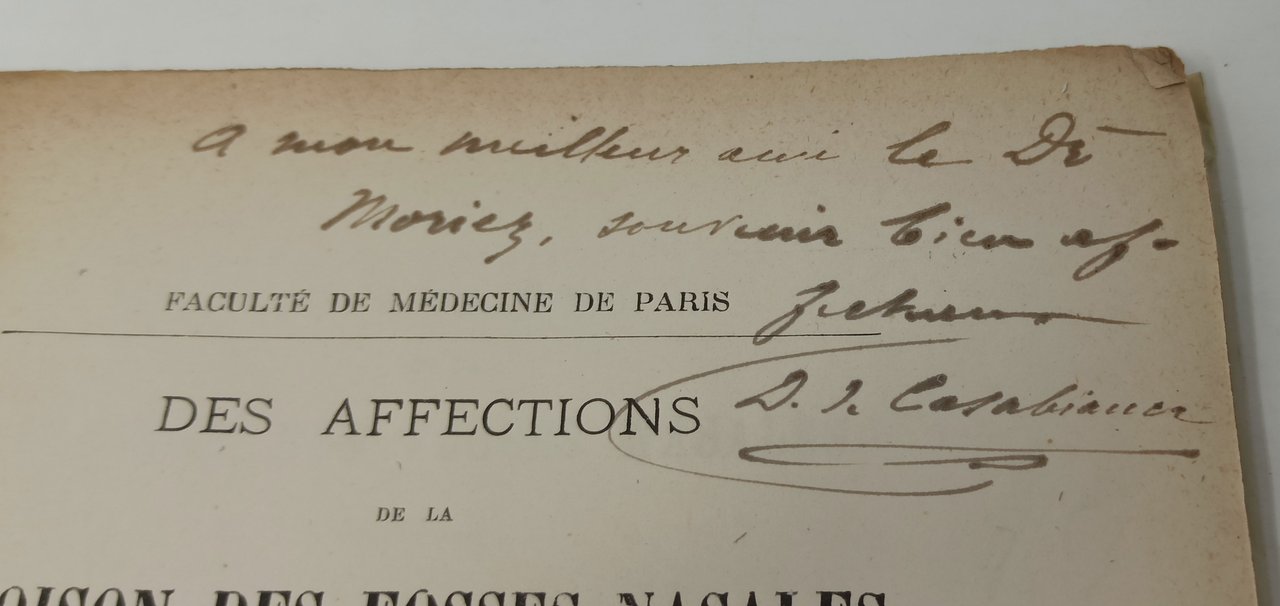 A mon meilleur ami le Dr
Moriez, souvenir bien af-
fectueux
FACULTÉ DE MÉDECINE DE PARIS
D. J. Casabianca
DES AFFECTIONS
DE LA
CLOISON DES FOSSES NASALES